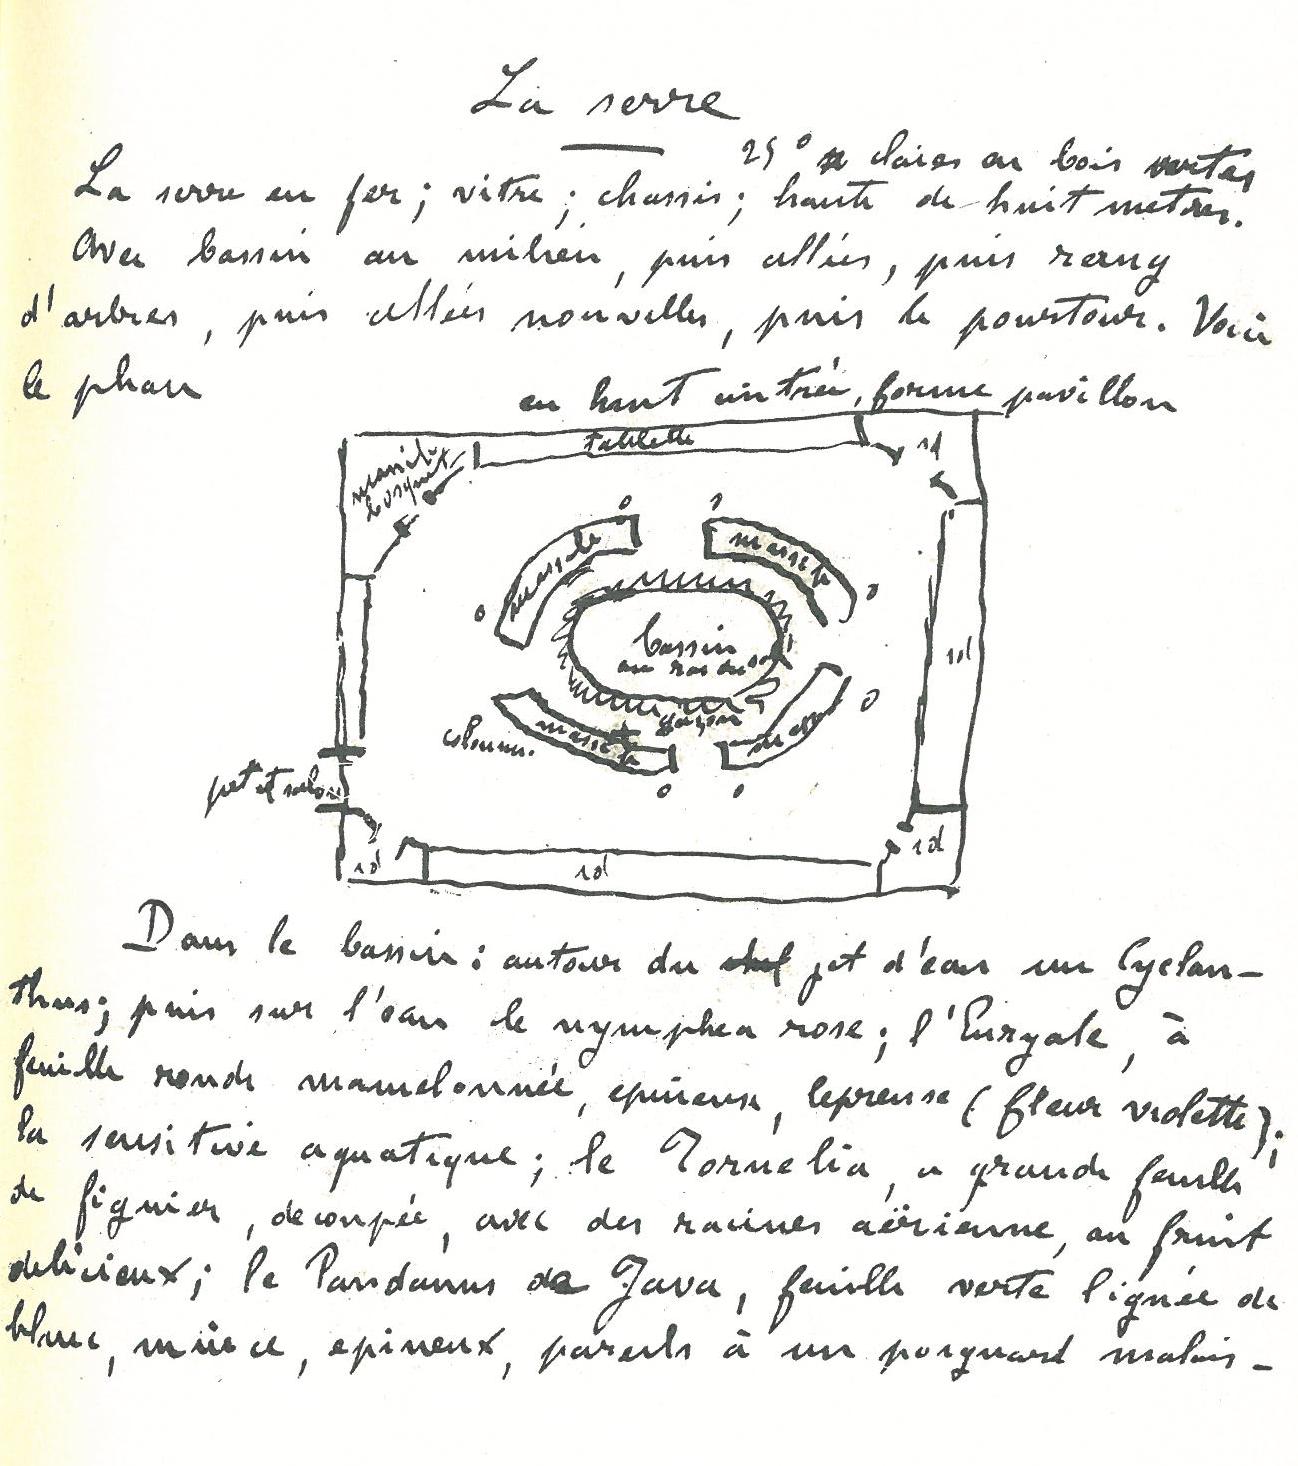 La serre
25° claies en bois vertes
La serre en fer; vitre; chassis; haute de huit metres.
Avec bassin au milieu, puis allées, puis rang
d'arbres, puis allées nouvelles, puis le pourtour. Voir
le plan
en haut vitrée, forme pavillon
tablette
id
massif
bosquet
massif
massif
id
bassin
au ras du sol
gazon
massif
massif
colonne.
petit salon
id
id
id
Dans le bassin: autour du jet d'eau un Cyclan-
thus; puis sur l'eau le nymphea rose; l'Euryale, à
feuille ronde mamelonnée, epineuse, lepreuse (fleur violette);
la sensitive aquatique; le Tornelia, a grande feuille
de figuier, decoupée, avec des racines aërienne, au fruit
delicieux; le Pandanus de Java, feuille verte lignée de
blanc, mince, epineux, pareils à un poignard malais-